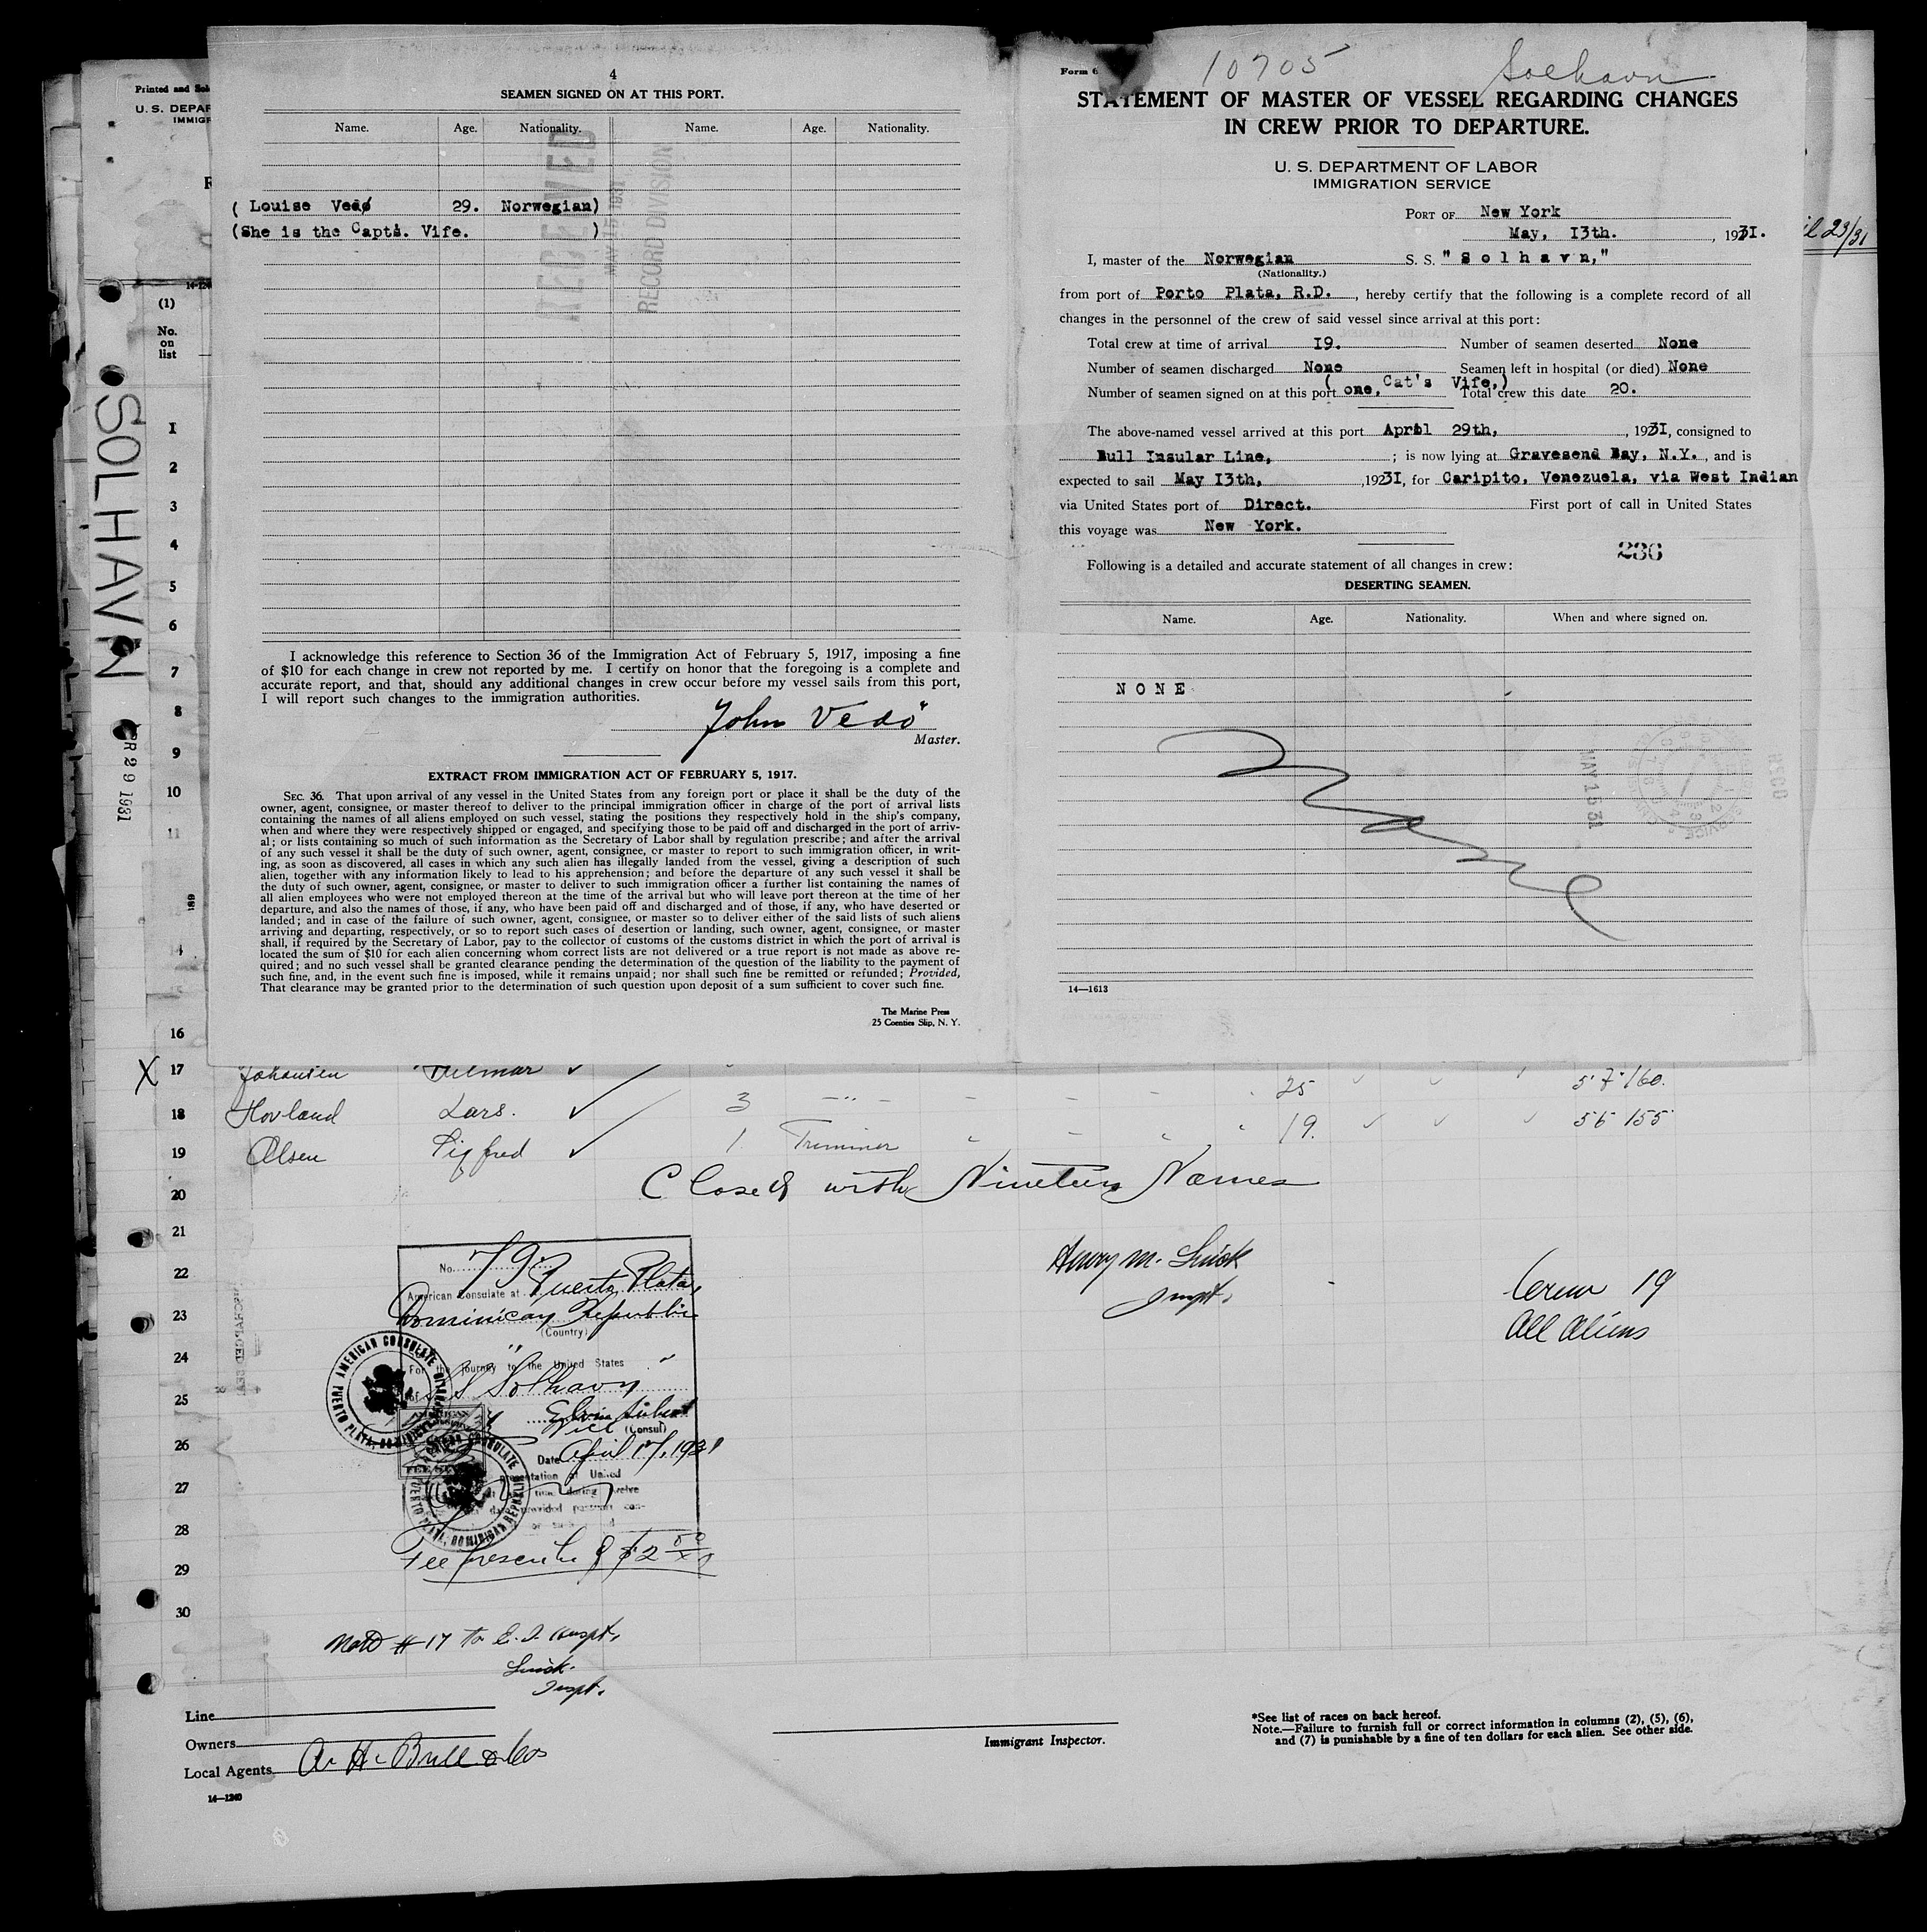 Printed and Sol
U. S. DEPAR
IMMIGR
14-124
(1)
No.
on
list
SOLHAVN
R 29 1931
4
SEAMEN SIGNED ON AT THIS PORT.
Name. Age. Nationality. Name. Age. Nationality.
RECEIVED
MAY 15 1931
RECORD DIVISION
( Louise Vedø 29. Norwegian)
(She is the Capts. Vife. )
I acknowledge this reference to Section 36 of the Immigration Act of February 5, 1917, imposing a fine
of $10 for each change in crew not reported by me. I certify on honor that the foregoing is a complete and
accurate report, and that, should any additional changes in crew occur before my vessel sails from this port,
I will report such changes to the immigration authorities.
John Vedö
Master.
EXTRACT FROM IMMIGRATION ACT OF FEBRUARY 5, 1917.
SEC. 36. That upon arrival of any vessel in the United States from any foreign port or place it shall be the duty of the
owner, agent, consignee, or master thereof to deliver to the principal immigration officer in charge of the port of arrival lists
containing the names of all aliens employed on such vessel, stating the positions they respectively hold in the ship's company,
when and where they were respectively shipped or engaged, and specifying those to be paid off and discharged in the port of arriv-
al; or lists containing so much of such information as the Secretary of Labor shall by regulation prescribe; and after the arrival
of any such vessel it shall be the duty of such owner, agent, consignee, or master to report to such immigration officer, in writ-
ing, as soon as discovered, all cases in which any such alien has illegally landed from the vessel, giving a description of such
alien, together with any information likely to lead to his apprehension; and before the departure of any such vessel it shall be
the duty of such owner, agent, consignee, or master to deliver to such immigration officer a further list containing the names of
all alien employees who were not employed thereon at the time of the arrival but who will leave port thereon at the time of her
departure, and also the names of those, if any, who have been paid off and discharged and of those, if any, who have deserted or
landed; and in case of the failure of such owner, agent, consignee, or master so to deliver either of the said lists of such aliens
arriving and departing, respectively, or so to report such cases of desertion or landing, such owner, agent, consignee, or master
shall, if required by the Secretary of Labor, pay to the collector of customs of the customs district in which the port of arrival is
located the sum of $10 for each alien concerning whom correct lists are not delivered or a true report is not made as above re-
quired; and no such vessel shall be granted clearance pending the determination of the question of the liability to the payment of
such fine, and, in the event such fine is imposed, while it remains unpaid; nor shall such fine be remitted or refunded; Provided,
That clearance may be granted prior to the determination of such question upon deposit of a sum sufficient to cover such fine.
The Marine Press
25 Coenties Slip, N. Y.
Form 6
10705 Solhavn
STATEMENT OF MASTER OF VESSEL REGARDING CHANGES
IN CREW PRIOR TO DEPARTURE.
U. S. DEPARTMENT OF LABOR
IMMIGRATION SERVICE
PORT OF New York
May, I3th. , 1931.
il 23/31
I, master of the Norwegian S. S. " S o l h a v n,"
(Nationality.)
from port of Porto Plata, R.D. , hereby certify that the following is a complete record of all
changes in the personnel of the crew of said vessel since arrival at this port:
Total crew at time of arrival I9. Number of seamen deserted None
Number of seamen discharged None Seamen left in hospital (or died) None
Number of seamen signed on at this port ( one, Cat's Vife,) Total crew this date 20.
The above-named vessel arrived at this port April 29th, , 1931, consigned to
Bull Insular Line, ; is now lying at Gravesend Bay, N.Y. , and is
expected to sail May I3th, , 1931, for Caripito, Venezuela, via West Indian
via United States port of Direct. First port of call in United States
this voyage was New York.
236
Following is a detailed and accurate statement of all changes in crew:
DESERTING SEAMEN.
Name. Age. Nationality. When and where signed on.
N O N E
MAY 15 31
RECD
14—1613
1
2
3
4
5
6
7
8
9
10
11
16
X 17 Johansen Hilmar ✓ 25 5'7" 160.
18 Hovland Lars. ✓ 3 19. 56 155
19 Olsen Sigfred ✓ 1 Trimmer
20 Closed with Nineteen Names
21
22
23
24
25
26
27
28
29
30
No. 79
American Consulate at Puerto Plata,
Dominican Republic
(Country)
For the journey to the United States
of SS Solhavn
Vice (Consul)
Date April 17, 1931
AMERICAN CONSULATE PUERTO PLATA, DOMINICAN REPUBLIC
Fee prescribed $2 50
Henry M. Smick
Inspt.
Crew 19
All Aliens
Note #17 to E. I. Hospt.
Smick.
Inspt.
Line
Owners
Local Agents A. H. Bull & Co
14—1240
Immigrant Inspector.
*See list of races on back hereof.
Note.—Failure to furnish full or correct information in columns (2), (5), (6),
and (7) is punishable by a fine of ten dollars for each alien. See other side.